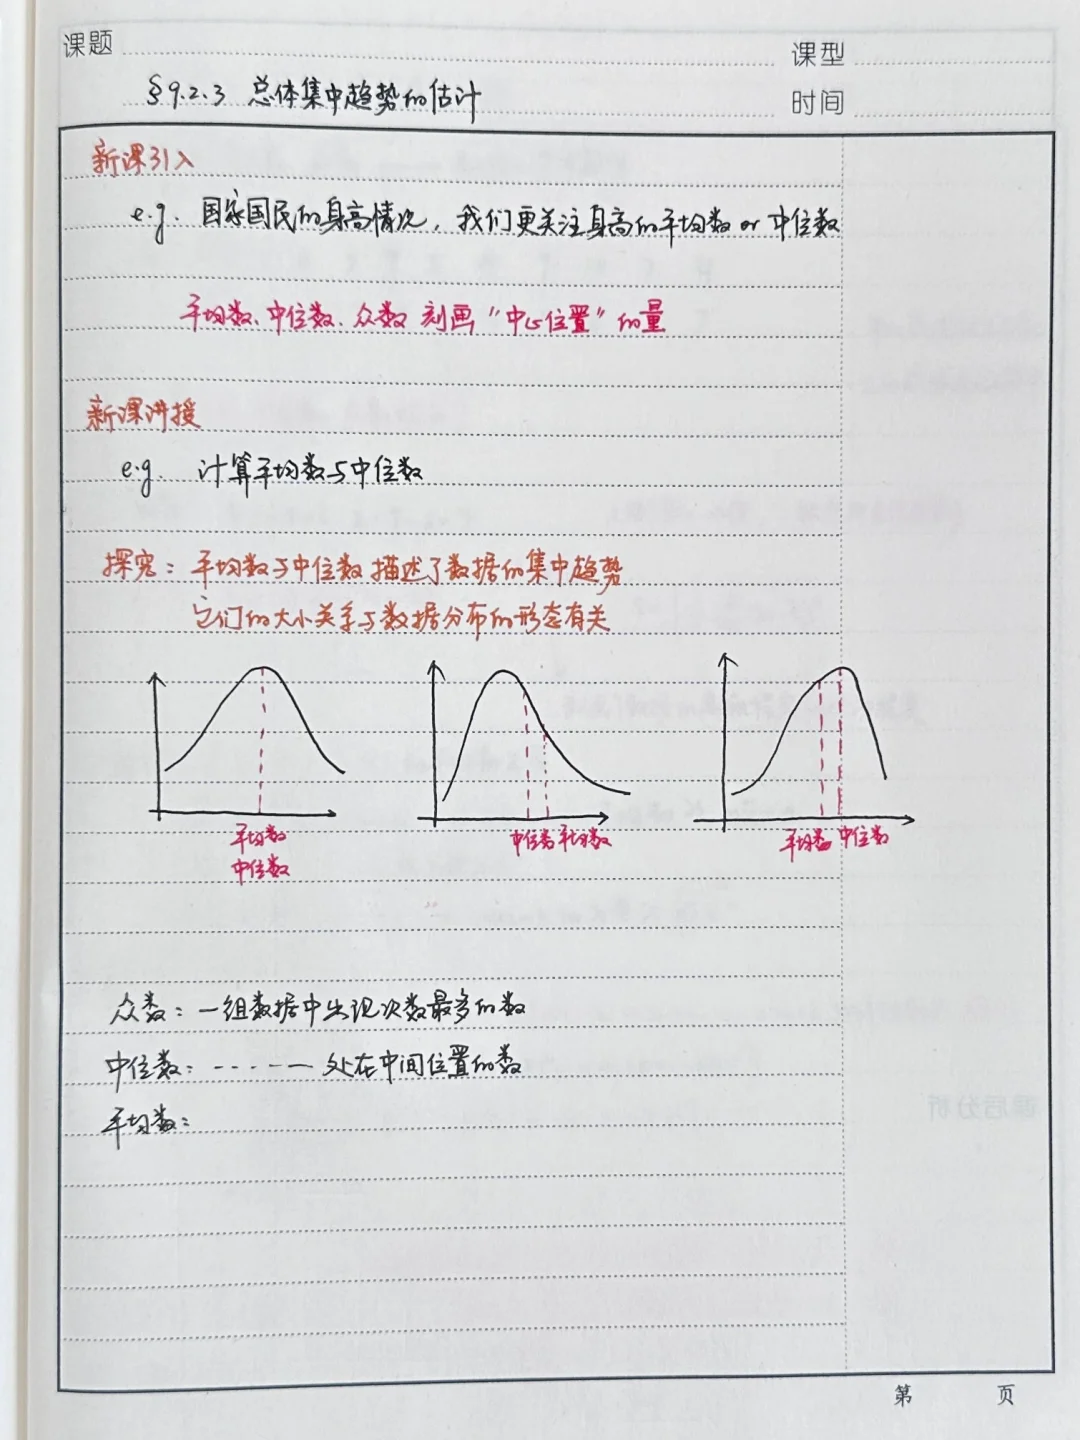 课题
课型
§9.2.3 总体集中趋势的估计
时间
新课引入
e.g. 国家国民的身高情况，我们更关注身高的平均数 or 中位数
平均数、中位数、众数 刻画“中心位置”的量
新课讲授
e.g. 计算平均数与中位数
探究：平均数与中位数描述了数据的集中趋势
它们的大小关系与数据分布的形态有关
平均数
中位数
中位数 平均数
平均数 中位数
众数：一组数据中出现次数最多的数
中位数：-----— 处在中间位置的数
平均数：
第 页